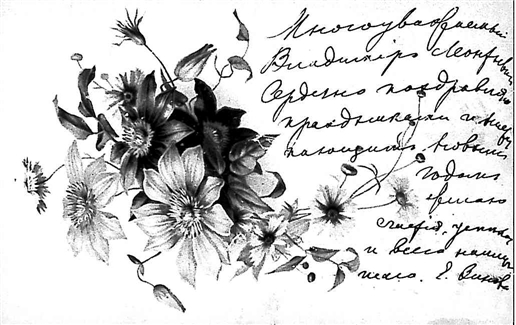 Многоуважаемый
Владимiръ Леонтьевичъ
Сердечно поздравляю
праздниками и
наступ. Новымъ
годомъ
желаю
счастiя, успеха
и всего наилуч
шаго. Е.